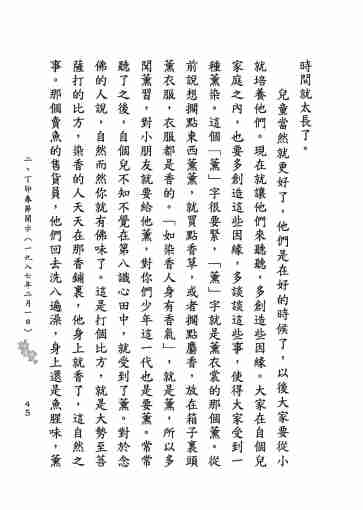 時間就太長了。
兒童當然就更好了，他們是在好的時候了，以後大家要從小
就培養他們。現在就讓他們來聽聽，多創造些因緣。大家在自個兒
家庭之內，也要多創造這些因緣，多談談這些事，使得大家受到一
種薰染。這個「薰」字很要緊，「薰」字就是薰衣裳的那個薰。從
前說想擱點東西薰薰，就買點香草，或者擱點麝香，放在箱子裏頭
薰衣服，衣服都是香的。「如染香人身有香氣」，就是薰，所以多
聞薰習，對小朋友就要給他薰，對你們少年這一代也是要薰。常常
聽了之後，自個兒不知不覺在第八識心田中，就受到了薰。對於念
佛的人說，自然而然你就有佛味了。這是打個比方，就是大勢至菩
薩打的比方，染香的人天天在那香鋪裏，他身上就香了，這自然之
事。那個賣魚的售貨員，他們回去洗八遍澡，身上還是魚腥味，薰
二、丁卯春節開示（一九八七年二月一日）
45